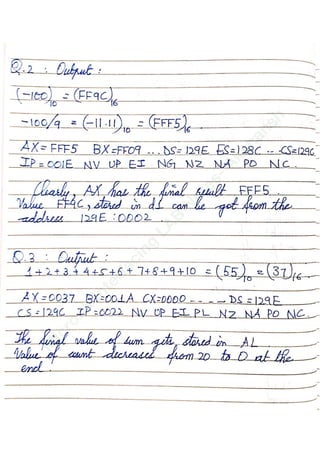 Q.2 : Output :
(-100)10 = (FF9C)16
-100/9 = (-11.11)10 = (FFF5)16.
AX=FFF5 BX=FF09 ... DS=129E ES=128C .. CS=129C
IP=001E NV UP EI NG NZ NA PO NC.
Clearly, AX has the final result FFF5.
Value FF9C, stored in d1 can be got from the
address 129E:0002.
Q.3 : Output :
1+2+3+4+5+6+7+8+9+10 = (55)10 = (37)16.
AX=0037 BX=001A CX=0000 ---- DS=129E
CS=129C IP=0022 NV UP EI PL NZ NA PO NC.
The final value of sum gets stored in AL.
Value of count decreases from 20 to 0 at the
end.